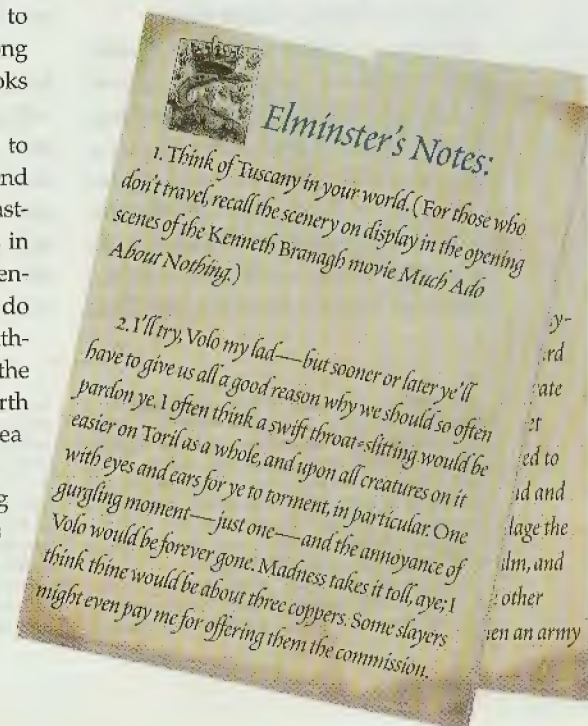 to
ong
oks
to
nd
ast-
in
en-
do
ith-
the
rth
ea
g
Elminster's Notes:
1. Think of Tuscany in your world. (For those who
don't travel, recall the scenery on display in the opening
scenes of the Kenneth Branagh movie Much Ado
About Nothing.)
2. I'll try, Volo my lad—but sooner or later ye'll
have to give us all a good reason why we should so often
pardon ye. I often think a swift throat-slitting would be
easier on Toril as a whole, and upon all creatures on it
with eyes and ears for ye to torment, in particular. One
gurgling moment—just one—and the annoyance of
Volo would be forever gone. Madness takes it toll, aye; I
think thine would be about three coppers. Some slayers
might even pay me for offering them the commission.
y-
rd
ate
et
ed to
id and
lage the
ilm, and
other
en an army